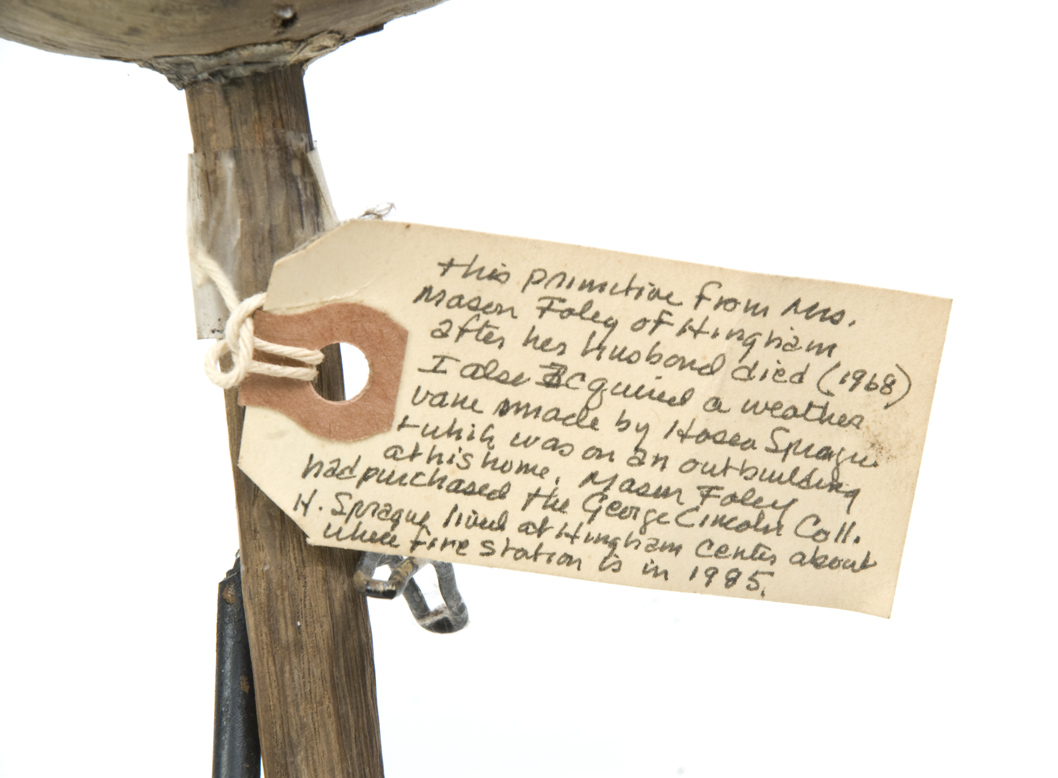 this primitive from Mrs.
Mason Foley of Hingham
after her husband died (1968)
I also acquired a weather
vane made by Hosea Sprague
which was on an outbuilding
at his home. Mason Foley
had purchased the George Lincoln Coll.
H. Sprague lived at Hingham Center about
where Fire Station is in 1985.